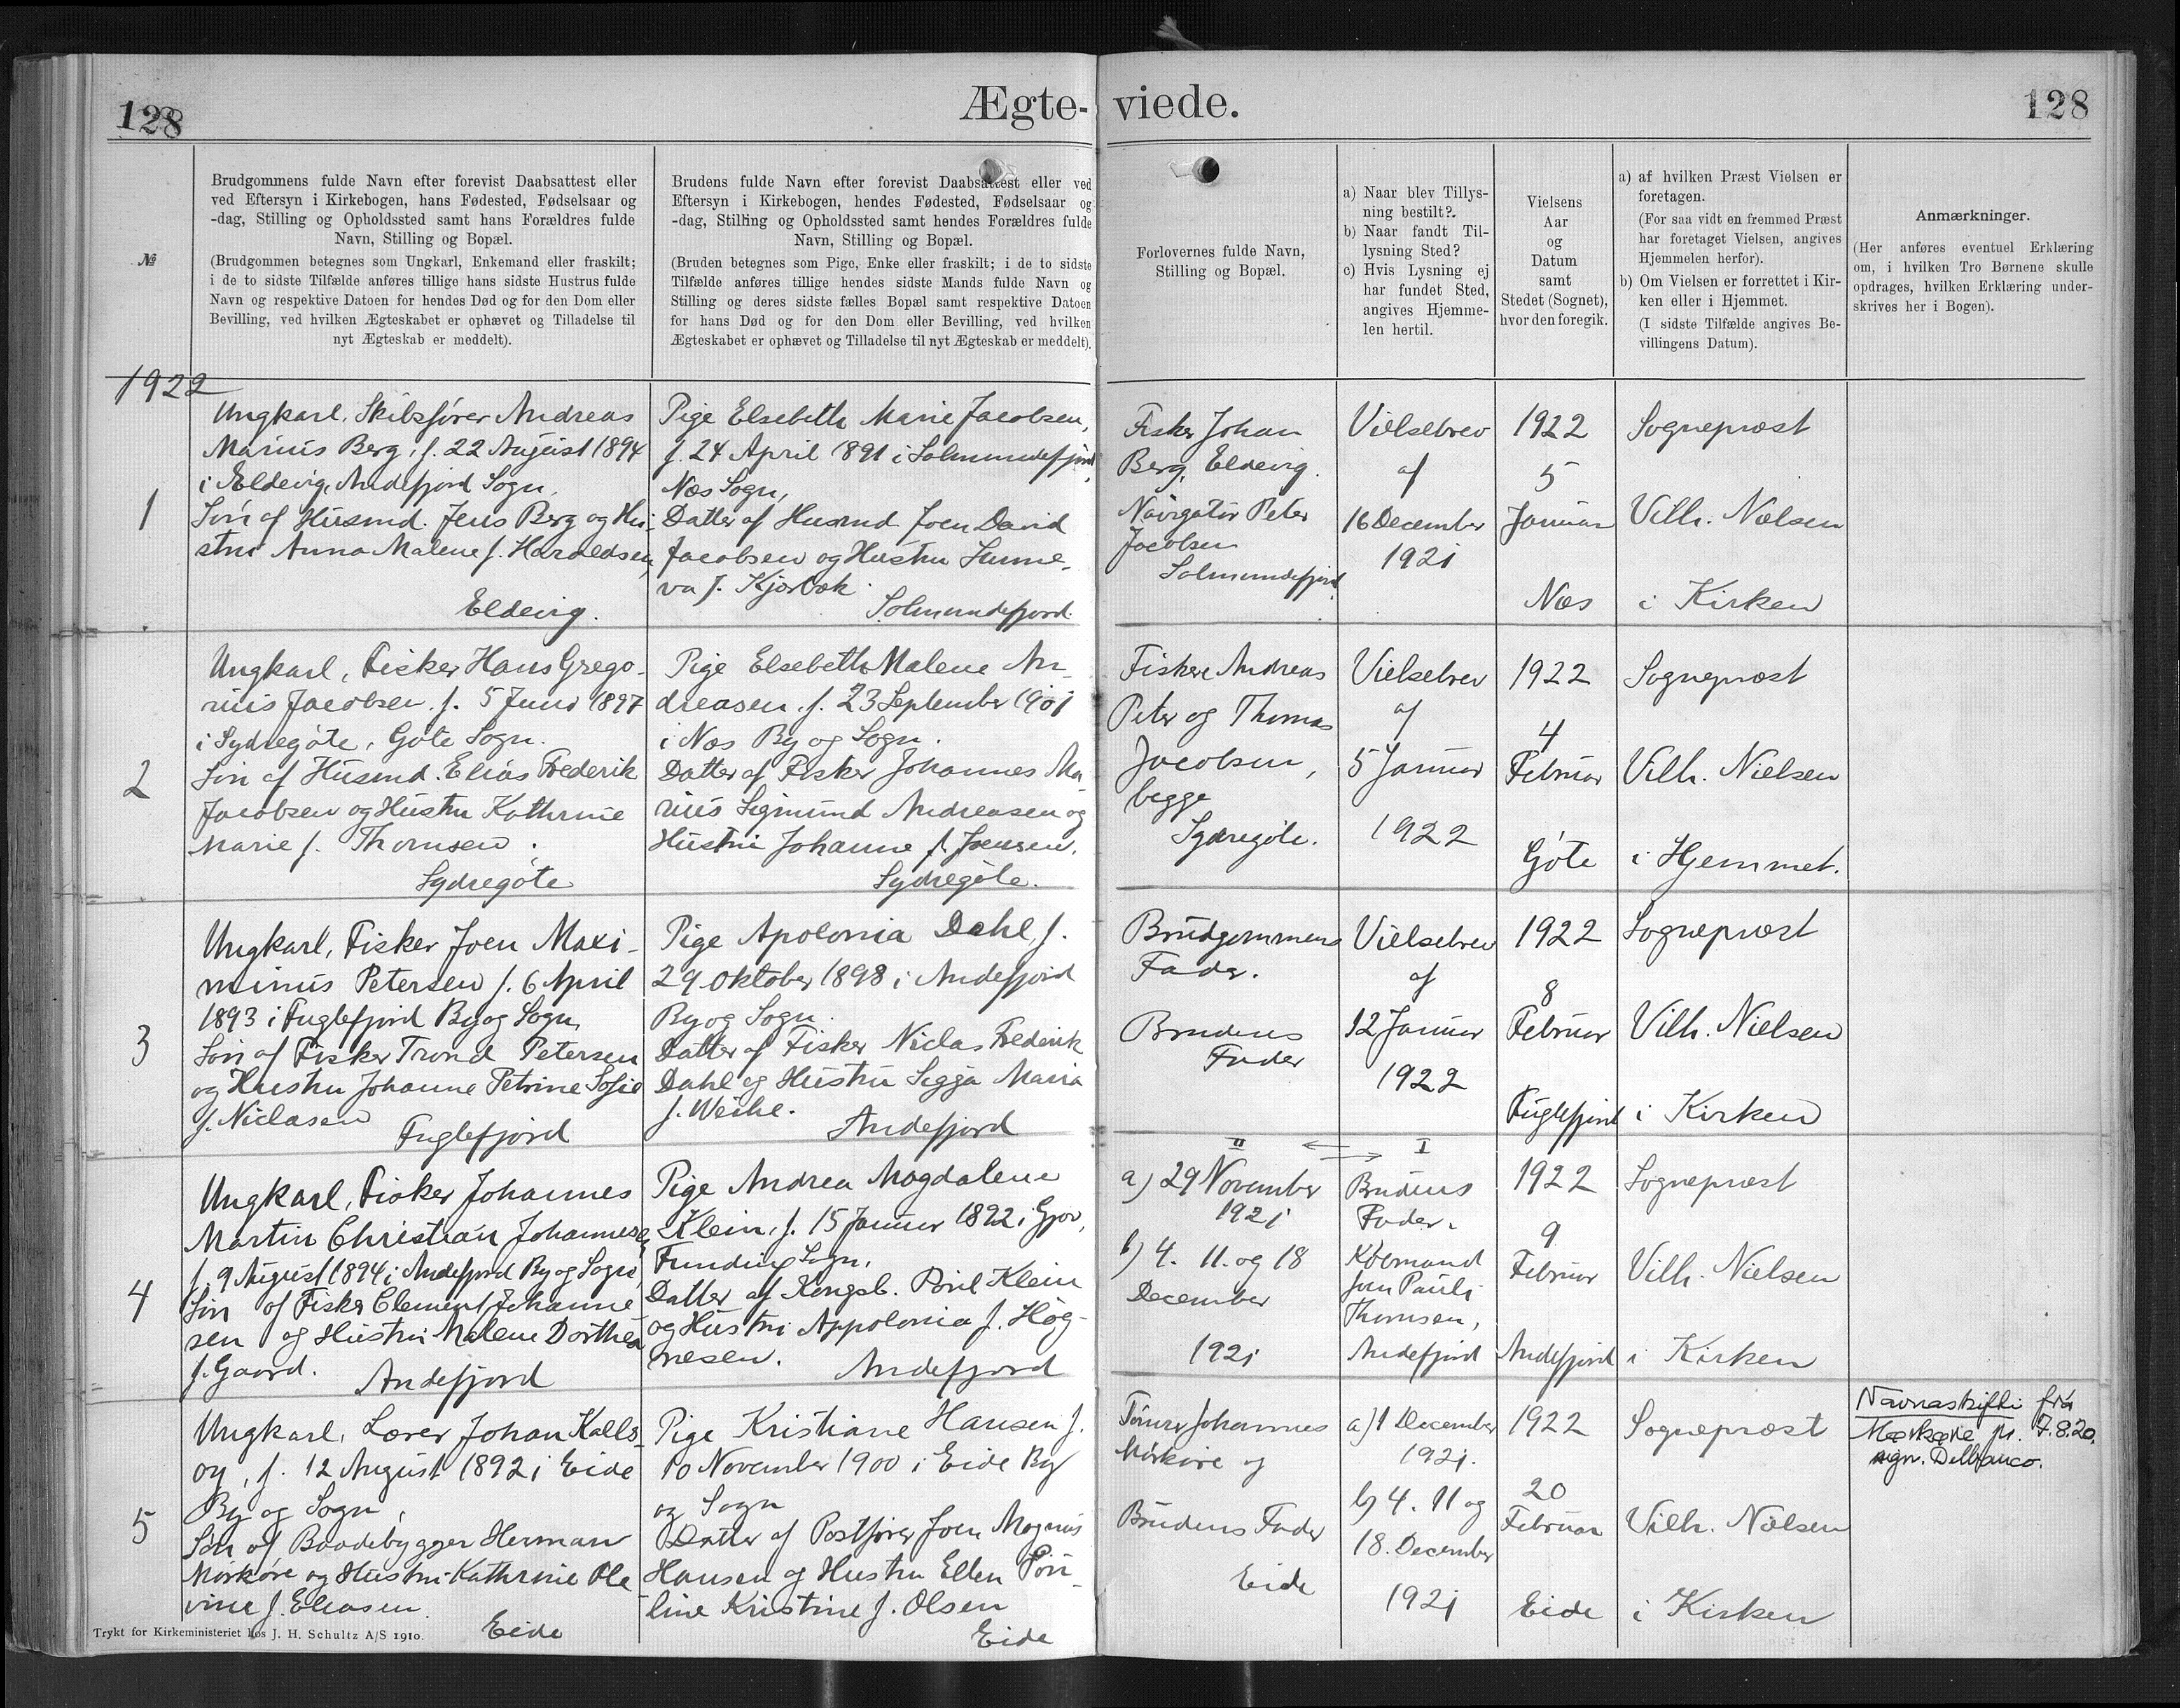 128
Ægte-
viede.
128
№
Brudgommens fulde Navn efter forevist Daabsattest eller
ved Eftersyn i Kirkebogen, hans Fødested, Fødselsaar og
-dag, Stilling og Opholdssted samt hans Forældres fulde
Navn, Stilling og Bopæl.
(Brudgommen betegnes som Ungkarl, Enkemand eller fraskilt;
i de to sidste Tilfælde anføres tillige hans sidste Hustrus fulde
Navn og respektive Datoen for hendes Død og for den Dom eller
Bevilling, ved hvilken Ægteskabet er ophævet og Tilladelse til
nyt Ægteskab er meddelt).
Brudens fulde Navn efter forevist Daabsattest eller ved
Eftersyn i Kirkebogen, hendes Fødested, Fødselsaar og
-dag, Stilling og Opholdssted samt hendes Forældres fulde
Navn, Stilling og Bopæl.
(Bruden betegnes som Pige, Enke eller fraskilt; i de to sidste
Tilfælde anføres tillige hendes sidste Mands fulde Navn og
Stilling og deres sidste fælles Bopæl samt respektive Datoen
for hans Død og for den Dom eller Bevilling, ved hvilken
Ægteskabet er ophævet og Tilladelse til nyt Ægteskab er meddelt).
Forlovernes fulde Navn,
Stilling og Bopæl.
a) Naar blev Tillys-
ning bestilt?
b) Naar fandt Til-
lysning Sted?
c) Hvis Lysning ej
har fundet Sted,
angives Hjemme-
len hertil.
Vielsens
Aar
og
Datum
samt
Stedet (Sognet),
hvor den foregik.
a) af hvilken Præst Vielsen er
foretagen.
(For saa vidt en fremmed Præst
har foretaget Vielsen, angives
Hjemmelen herfor).
b) Om Vielsen er forrettet i Kir-
ken eller i Hjemmet.
(I sidste Tilfælde angives Be-
villingens Datum).
Anmærkninger.
(Her anføres eventuel Erklæring
om, i hvilken Tro Børnene skulle
opdrages, hvilken Erklæring under-
skrives her i Bogen).
1922
1
Ungkarl, Skibsfører Andreas
Marius Berg, f. 22 August 1894
i Eldevig, Andefjord Sogn,
Søn af Husmd. Jens Berg og Hu-
stru Anna Malene f. Haraldsen,
Eldevig.
Pige Elsebeth Marie Jacobsen,
f. 24 April 1891 i Solmundefjord,
Næs Sogn,
Datter af Husmd Joen David
Jacobsen og Hustru Sunne-
va f. Kjærbæk.
Solmundefjord.
Fisker Johan
Berg, Eldevig.
Navigatør Peter
Jacobsen
Solmundefjord
Vielsebrev
af
16 December
1921
1922
5
Januar
Næs
Sognepræst
Vilh. Nielsen
i Kirken
2
Ungkarl, Fisker Hans Grego-
rius Jacobsen, f. 5 Juni 1897
i Sydregøte, Gøte Sogn.
Søn af Husmd. Elias Frederik
Jacobsen og Hustru Kathrine
Marie f. Thomsen.
Sydregøte
Pige Elsebeth Malene An-
dreasen, f. 23 September 1901
i Næs By og Sogn.
Datter af Fisker Johannes Ma
rius Sigmund Andreasen og
Hustru Johanne f. Joensen.
Sydregøte.
Fiskere Andreas
Peter og Thomas
Jacobsen,
begge
Sydregøte.
Vielsebrev
af
5 Januar
1922
1922
4
Februar
Gøte
Sognepræst
Vilh. Nielsen
i Hjemmet.
3
Ungkarl, Fisker Joen Maxi-
minus Petersen f. 6 April
1893 i Fuglefjord By og Sogn,
Søn af Fisker Trond Petersen
og Hustru Johanne Petrine Sofie
f. Niclasen
Fuglefjord
Pige Apolonia Dahl, f.
29 Oktober 1898 i Andefjord
By og Sogn.
Datter af Fisker Niclas Frederik
Dahl og Hustru Sigga Maria
f. Weihe.
Andefjord
Brudgommens
Fader.
Brudens
Fader
Vielsebrev
af
12 Januar
1922
1922
8
Februar
Fuglefjord
Sognepræst
Vilh. Nielsen
i Kirken
4
Ungkarl, Fisker Johannes
Martin Christian Johannesen,
f. 9 August 1894 i Andefjord By og Sogn
Søn af Fisker Clement Johanne
sen og Hustru Malene Dorthea
f. Gaard.
Andefjord
Pige Andrea Magdalene
Klein, f. 15 Januar 1892 i Gjov,
Funding Sogn,
Datter af Kongsb. Poul Klein
og Hustru Appolonia f. Høg-
nesen.
Andefjord
II ← → I
a) 29 November
1921
b) 4. 11. og 18
December
1921
Brudens
Fader.
Købmand
Joen Pauli
Thomsen,
Andefjord
1922
9
Februar
Andefjord
Sognepræst
Vilh. Nielsen
i Kirken
5
Ungkarl, Lærer Johan Kalls-
oy, f. 12 August 1892 i Eide
By og Sogn,
Søn af Baadebygger Herman
Mørkøre og Hustru Kathrine Ole
vine f. Eliasen.
Eide
Pige Kristiane Hansen f.
10 November 1900 i Eide By
og Sogn
Datter af Postfører Joen Magnus
Hansen og Hustru Ellen Pou-
line Kristine f. Olsen
Eide
Tømrer Johannes
Mørkøre og
Brudens Fader
Eide
a) 1 December
1921.
b) 4. 11 og
18. December
1921
1922
20
Februar
Eide
Sognepræst
Vilh. Nielsen
i Kirken
Navnaskifti frá
Mørkøre pr. 7.8.20.
sign. Delbanco.
Trykt for Kirkeministeriet hos J. H. Schultz A/S 1910.